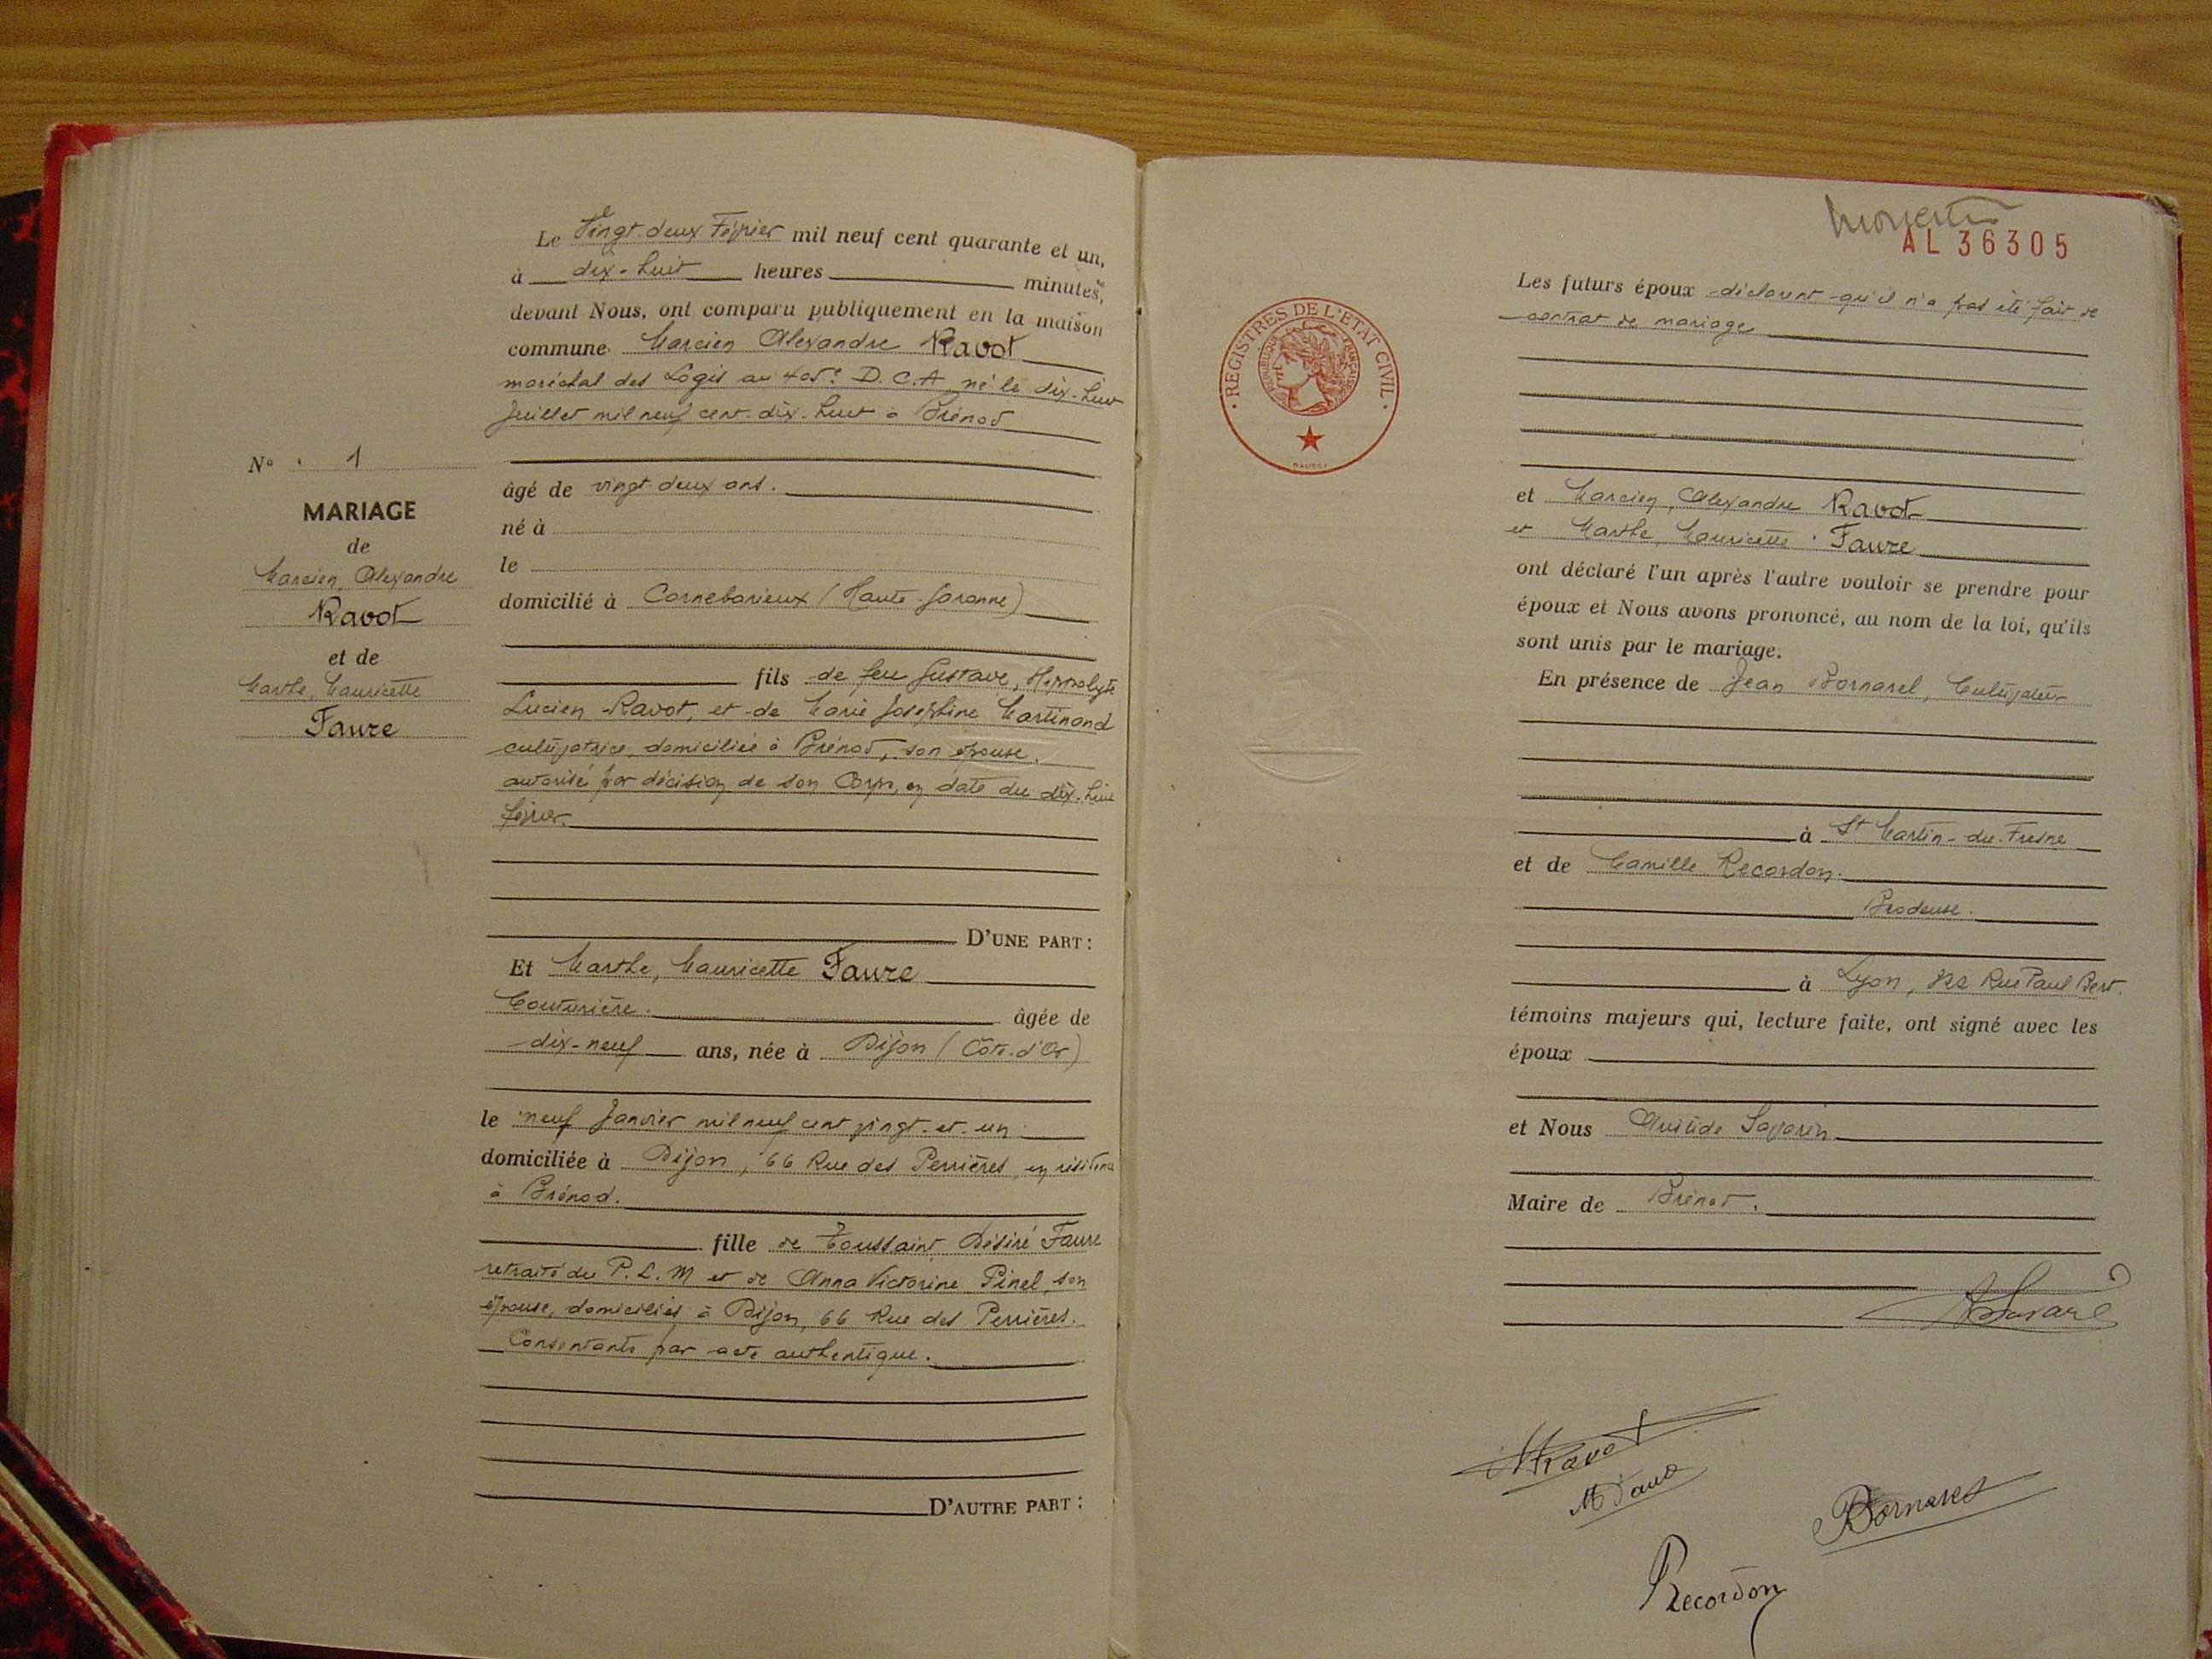 Le Vingt-deux Février mil neuf cent quarante et un,
à dix-huit heures minutes,
devant Nous, ont comparu publiquement en la maison
commune Marcien Alexandre Ravot
maréchal des Logis au 405e D.C.A né le dix-huit
Juillet mil neuf cent dix-huit à Brénod
âgé de vingt deux ans.
né à
le
domicilié à Cornebarieux (Haute-Garonne)
fils de feu Gustave, Hippolyte
Lucien Ravot, et de Marie Joséphine Martinand
cultivatrice, domiciliée à Brénod, son épouse.
autorisé par décision de son Corps, en date du dix-huit
février.
D'UNE PART :
N° 1
MARIAGE
de
Marcien, Alexandre
Ravot
et de
Marthe, Mauricette
Faure
Et Marthe, Mauricette Faure
Couturière. âgée de
dix-neuf ans, née à Dijon (Côte-d'Or)
le neuf Janvier mil neuf cent vingt-et-un
domiciliée à Dijon, 66 Rue des Perrières, en résidence
à Brénod.
fille de Toussaint Désiré Faure
retraité du P.L.M et de Anna Victorine Pinel, son
épouse, domiciliés à Dijon, 66 Rue des Perrières.
Consentants par acte authentique.
D'AUTRE PART :
AL 36305
REGISTRES DE L'ETAT CIVIL
REPUBLIQUE FRANÇAISE
Les futurs époux déclarent qu'il n'a pas été fait de
contrat de mariage
et Marcien, Alexandre Ravot
et Marthe, Mauricette Faure
ont déclaré l'un après l'autre vouloir se prendre pour
époux et Nous avons prononcé, au nom de la loi, qu'ils
sont unis par le mariage.
En présence de Jean Bornarel, Cultivateur
à St Martin-du-Fresne
et de Camille Recordon.
Brodeuse.
à Lyon, Rue Paul Bert.
témoins majeurs qui, lecture faite, ont signé avec les
époux
et Nous Aristide Savarin
Maire de Brénod.
MRavot
M Faure
Bornarel
Recordon